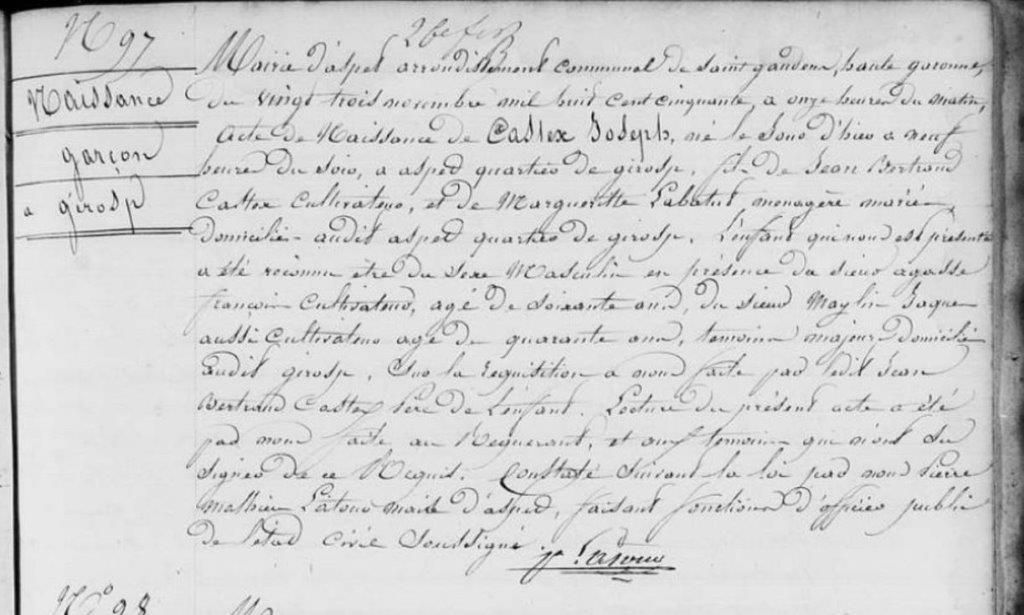 N° 97
Naissance
garçon
a girosp
Mairie d'aspet arrondissement communal de saint gaudens, haute garonne,
du vingt trois novembre mil huit cent cinquante, a onze heures du matin,
Acte de Naissance de Castex Joseph, né le jour d'hier a neuf
heures du soir, a aspet quartier de girosp, fils de Jean Bertrand
Castex Cultivateur, et de Margueritte Labatut menagère mariés
domiciliés audit aspet quartier de girosp. L'enfant qui nous est présenté
a été reconnu être du sexe Masculin en présence du sieur agasse
françois Cultivateur, agé de soixante ans, du sieur Maylin Jaques
aussi Cultivateur agé de quarante ans, temoins majeurs domiciliés
audit girosp. Sur la requisition a nous faite par ledit Jean
Bertrand Castex Père de L'enfant. Lecture du présent acte a été
par nous faite au Requerant, et aux temoins qui n'ont su
signer de ce Requis. Constaté suivant la loi par nous Pierre
Mathieu Latour maire d'aspet, faisant fonctions d'officier public
de l'état civil soussigné. P. Latour
N° 98